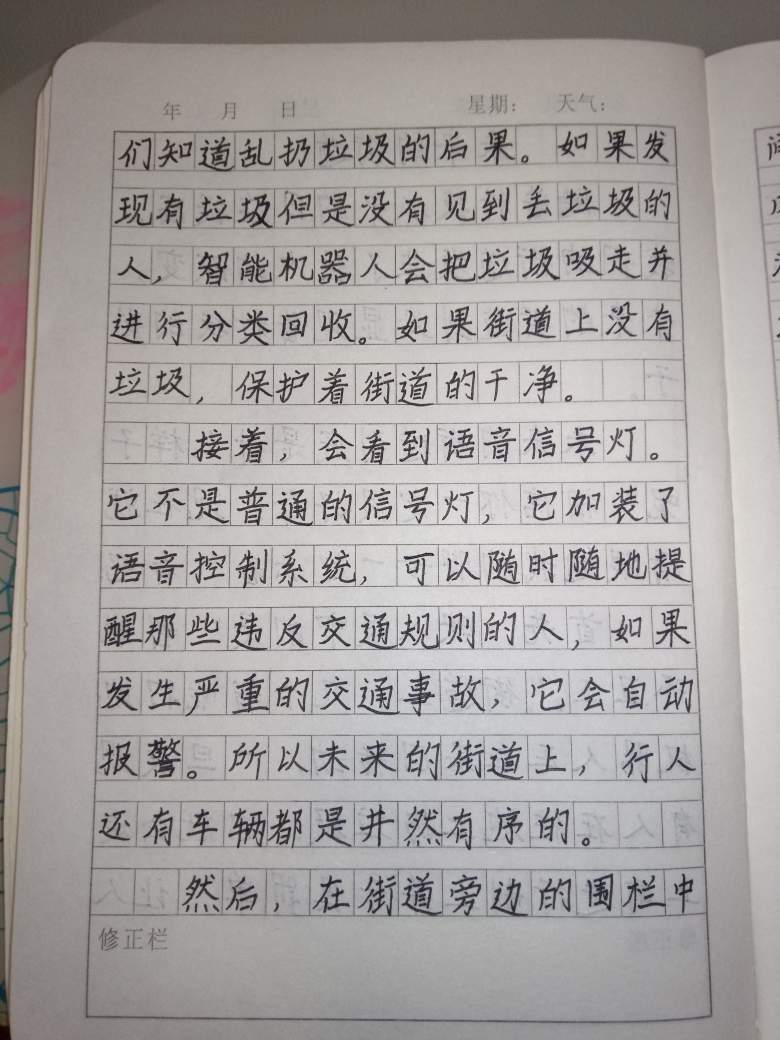 年 月 日 星期： 天气：
们知道乱扔垃圾的后果。如果发
现有垃圾但是没有见到丢垃圾的
人，智能机器人会把垃圾吸走并
进行分类回收。如果街道上没有
垃圾，保护着街道的干净。
接着，会看到语音信号灯。
它不是普通的信号灯，它加装了
语音控制系统，可以随时随地提
醒那些违反交通规则的人，如果
发生严重的交通事故，它会自动
报警。所以未来的街道上，行人
还有车辆都是井然有序的。
然后，在街道旁边的围栏中
修正栏